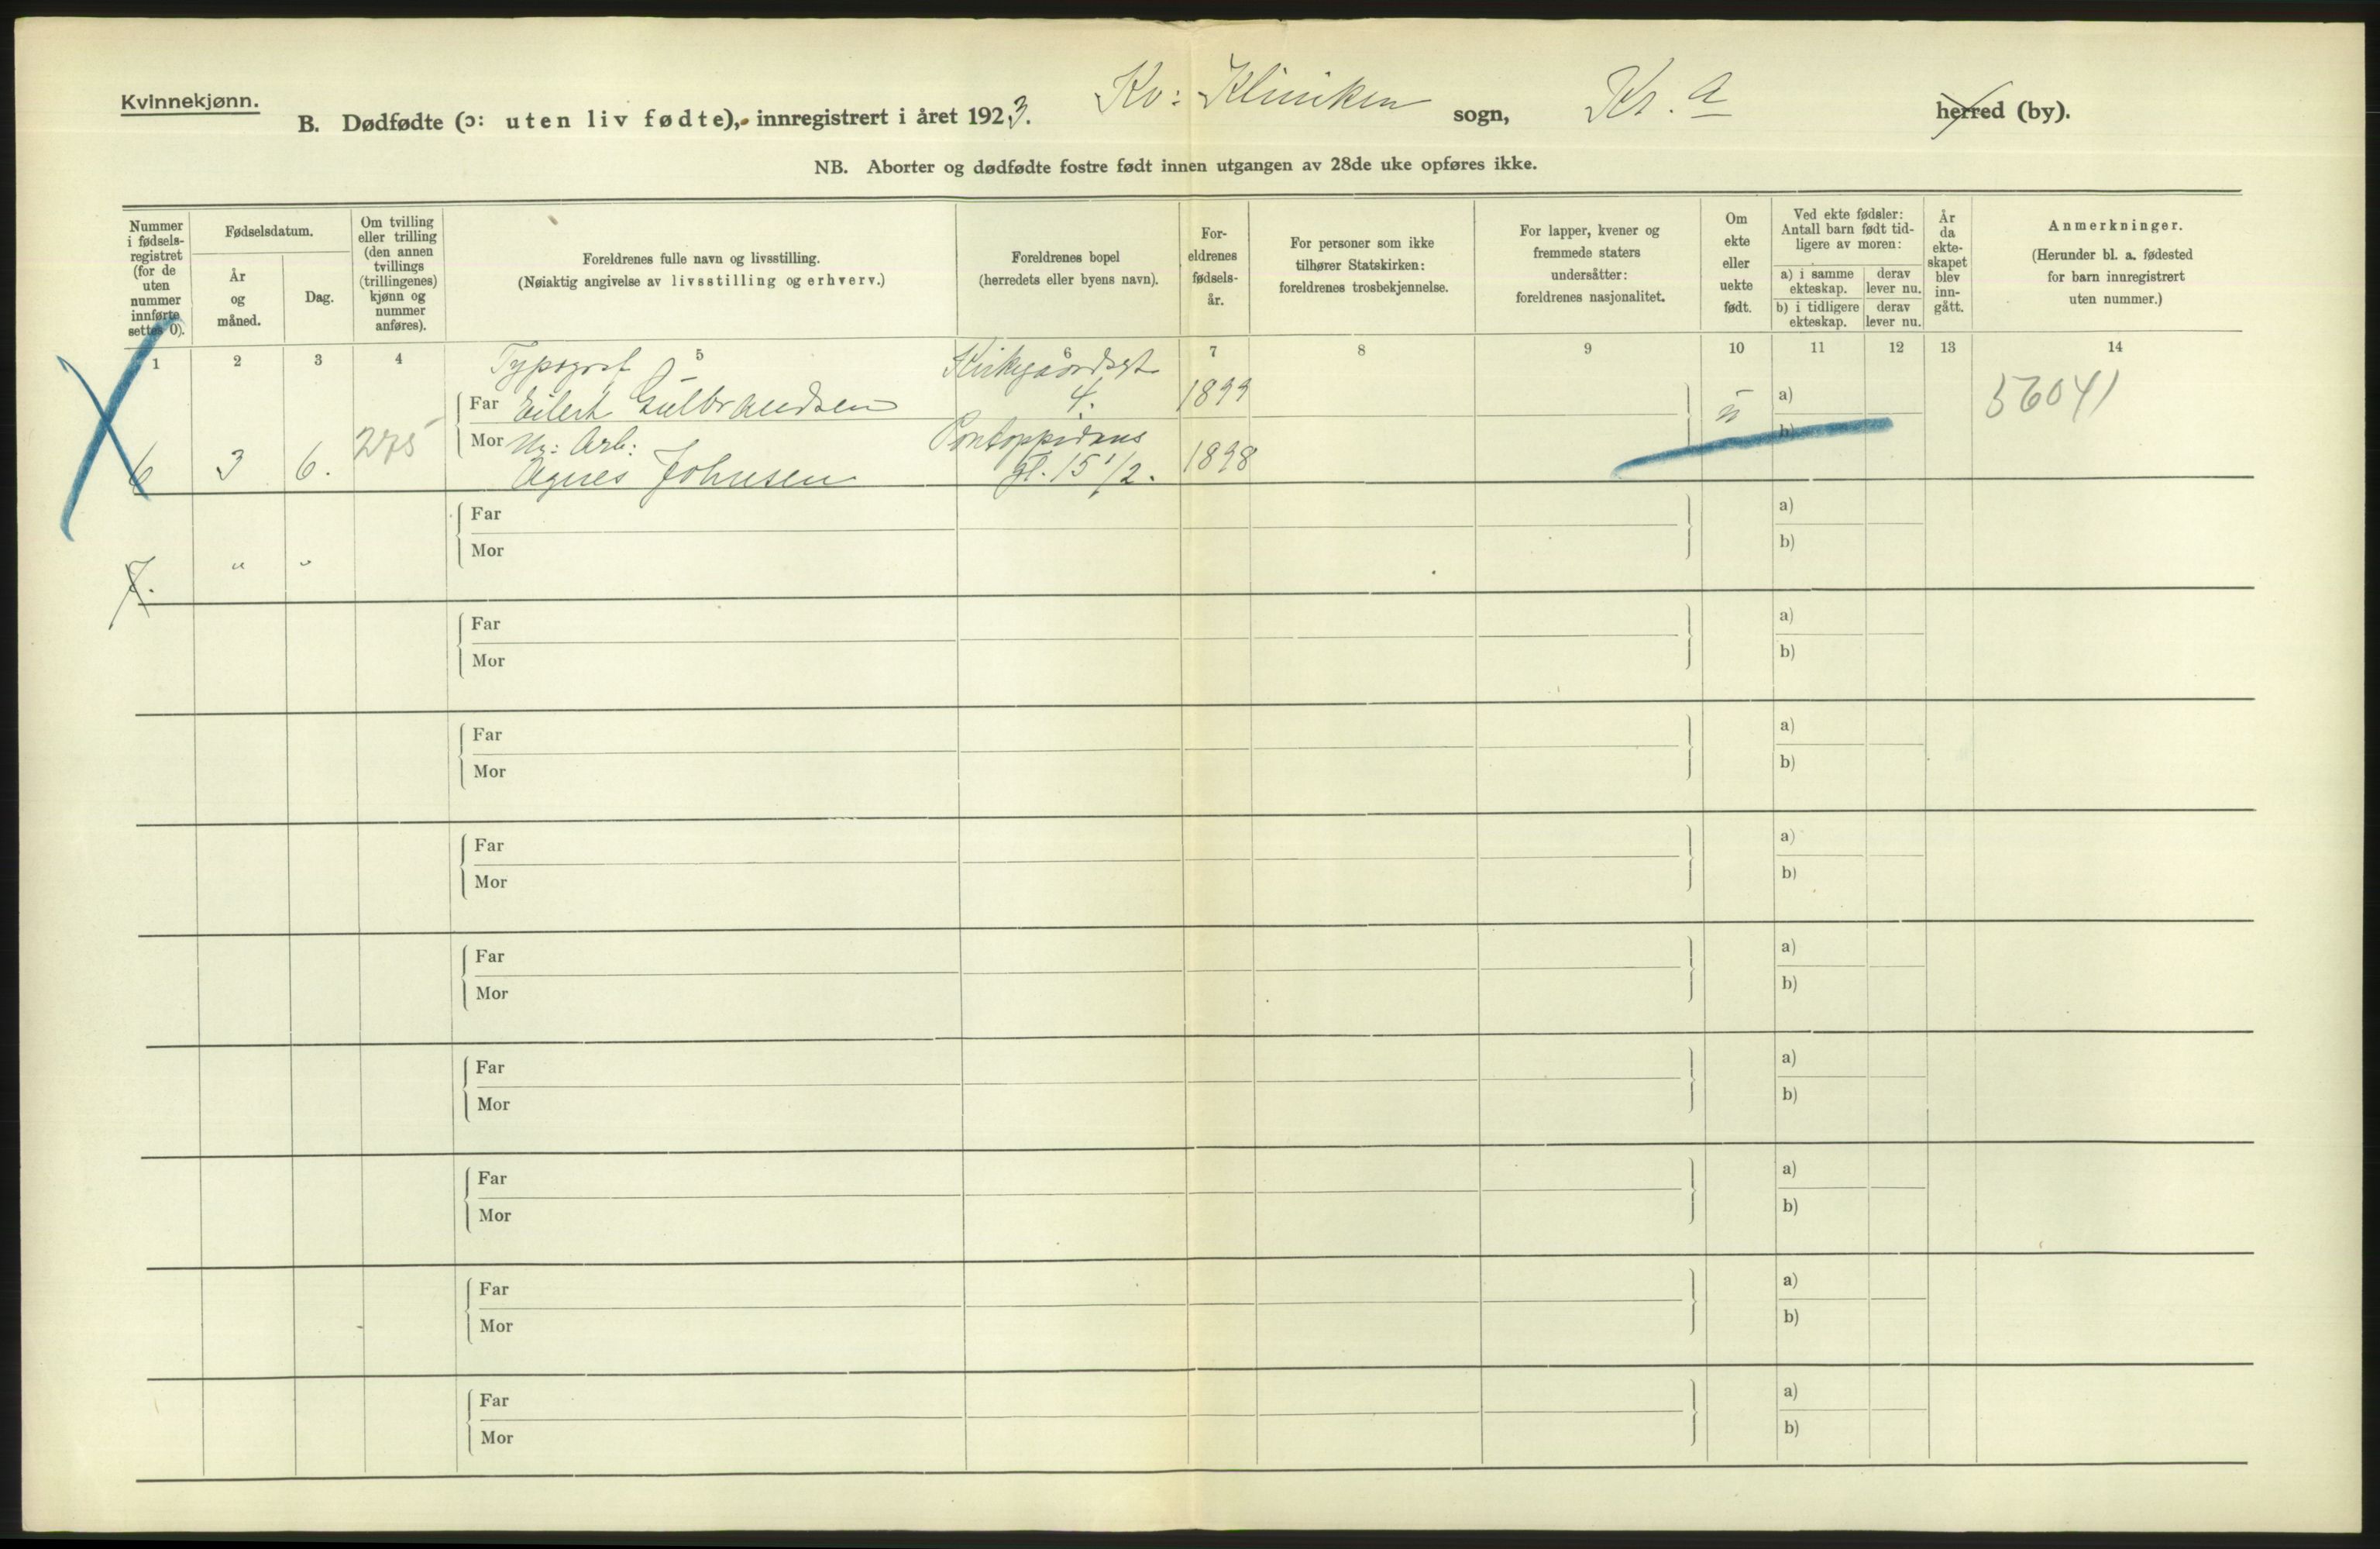 Kvinnekjønn.
B. Dødfødte (ɔ: uten liv fødte), innregistrert i året 1923. Kv: Kliniken sogn, Kr. a herred (by).
NB. Aborter og dødfødte fostre født innen utgangen av 28de uke opføres ikke.
Nummer i fødsels-registret (for de uten nummer innførte settes 0).
Fødselsdatum.
År og måned.
Dag.
Om tvilling eller trilling (den annen tvillings (trillingenes) kjønn og nummer anføres).
Foreldrenes fulle navn og livsstilling.
(Nøiaktig angivelse av livsstilling og erhverv.)
Foreldrenes bopel
(herredets eller byens navn).
For-eldrenes fødsels-år.
For personer som ikke tilhører Statskirken: foreldrenes trosbekjennelse.
For lapper, kvener og fremmede staters undersåtter: foreldrenes nasjonalitet.
Om ekte eller uekte født.
Ved ekte fødsler: Antall barn født tid-ligere av moren:
a) i samme ekteskap.
derav lever nu.
b) i tidligere ekteskap.
derav lever nu.
År da ekte-skapet blev inn-gått.
Anmerkninger.
(Herunder bl. a. fødested for barn innregistrert uten nummer.)
1 2 3 4 5 6 7 8 9 10 11 12 13 14
Typograf Kirkegaardsgt
Far Eilert Gulbrandsen 4. 1899 u a) 56041
275 Mor Ug: Arb: Pontoppidans b)
6 3 6. Agnes Johnsen gt. 15 1/2. 1898
Far a)
Mor b)
7. " "
Far a)
Mor b)
Far a)
Mor b)
Far a)
Mor b)
Far a)
Mor b)
Far a)
Mor b)
Far a)
Mor b)
Far a)
Mor b)
Far a)
Mor b)